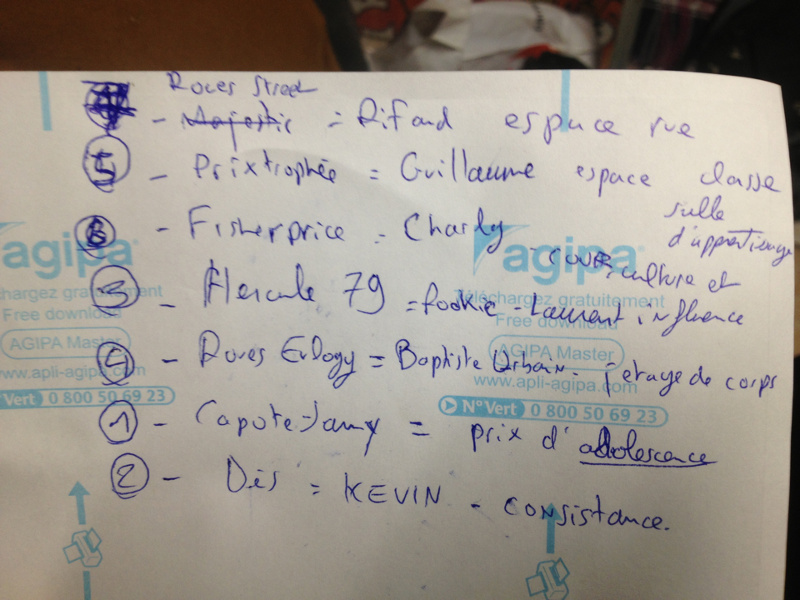 Roues Street
- Majestic = Rifand espace rue
5 - Prixtrophée = Guillaume espace classe
salle
d'apprentissage
6 - Fisherprice - Charly
- cour, culture et
3 - Hercule 79 = Rookie - Laurent influence
4 - Roues = Baptiste Urbain - de corps
1 - Capote = prix d'adolescence
2 - Dés = KEVIN - CONSistance.
agipa
agipa
chargez gratuitement
Téléchargez gratuitement
Free download
Free download
AGIPA Master
AGIPA Master
www.apli-agipa.com
www.apli-agipa.com
Vert 0 800 50 69 23
N° Vert 0 800 50 69 23